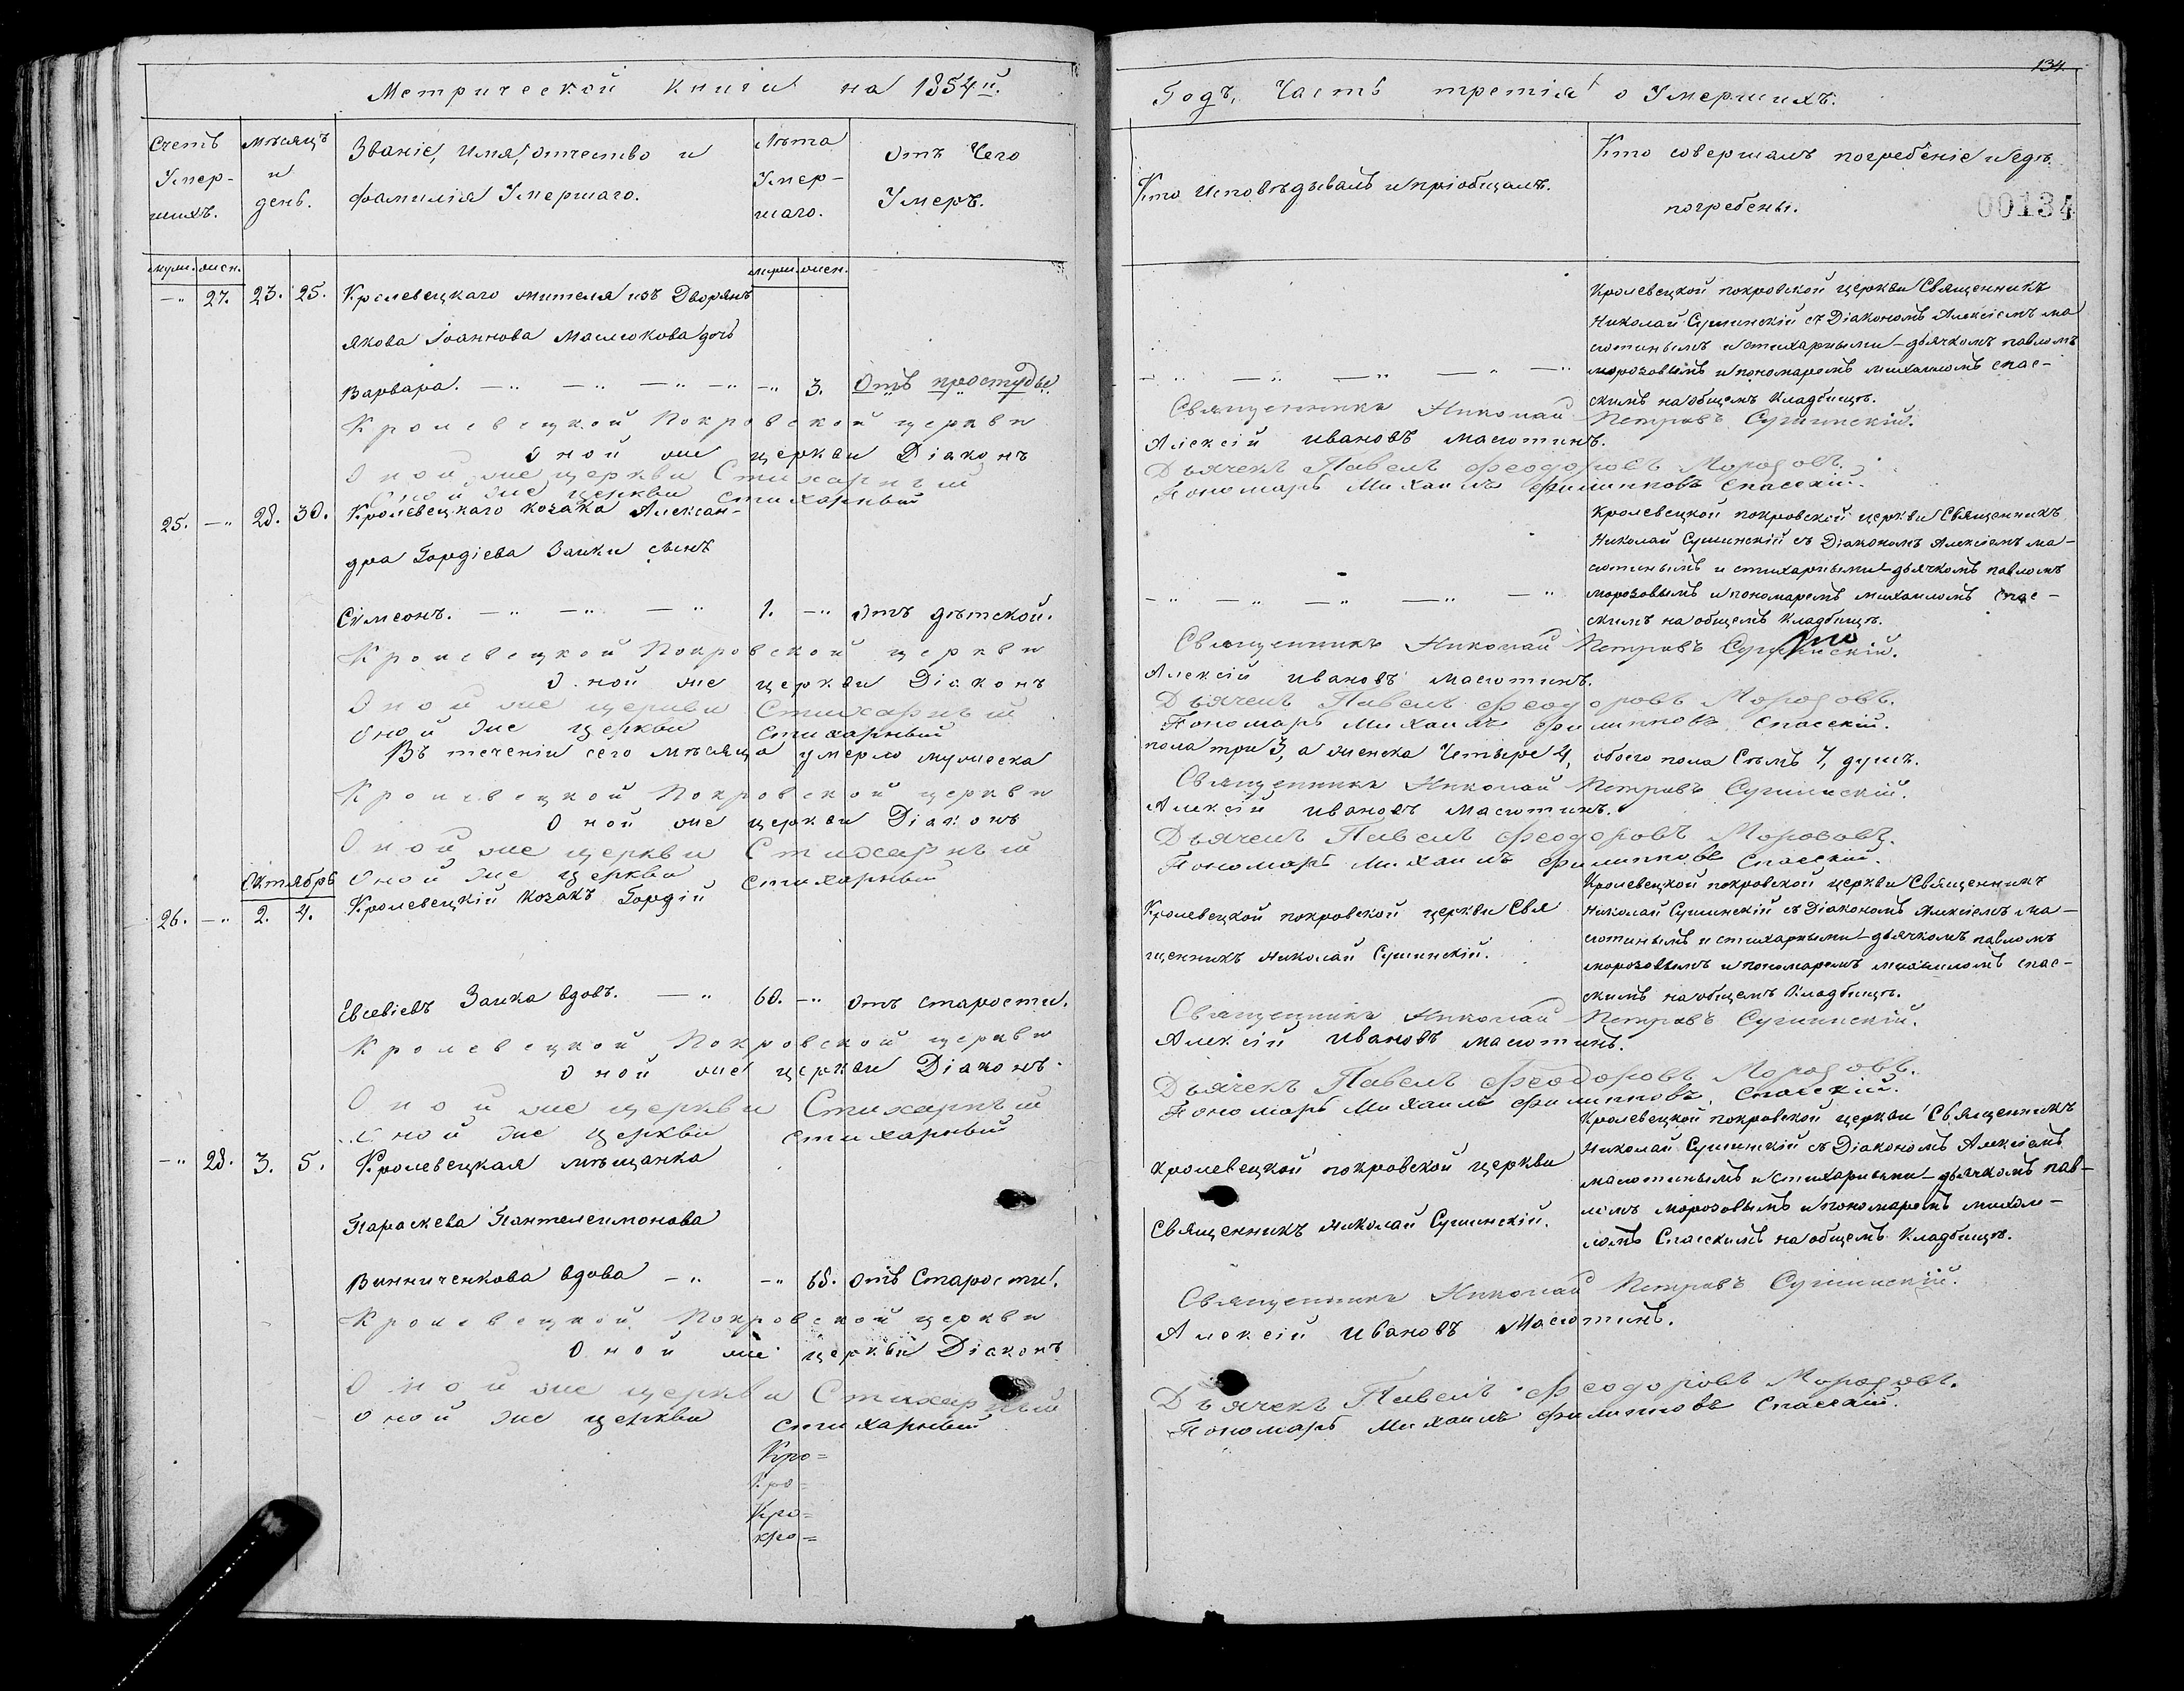 Метрической Книги на 1854й.
Счетъ Умер-шихъ.
мѣсяцъ и день.
Званіе, имя, отчество и фамилія Умершаго.
Лѣта Умер-шаго.
Отъ Чего Умеръ.
муж. жен.
муж. жен.
-" 27. 23. 25. Кролевецкаго жителя изъ Дворянъ
якова Іоаннова Маслюкова дочь
Варвара. —" —" —" —" -" 3. Отъ простуды.
Кролевецкой Покровской церкви
Оной же церкви Діаконъ
Оной же церкви Стихарный
Оной же церкви стихарный
25. -" 28. 30. Кролевецкаго козака Алексан-
дра Гордіева Заики сынъ
Сѵмеонъ. —" —" —" 1. -" отъ дѣтской.
Кролевецкой Покровской церкви
Оной же церкви Діаконъ
Оной же церкви Стихарный
Оной же церкви стихарный
Въ теченіи сего мѣсяца умерло мужеска
Кролевецкой Покровской церкви
Оной же церкви Діаконъ
Оной же церкви Стихарный
Оной же церкви стихарный
Октябрь
26. -" 2. 4. Кролевецкій козакъ Гордій
Евсевіевъ Заика вдовъ. —" 60. -" отъ старости.
Кролевецкой Покровской церкви
Оной же церкви Діаконъ.
Оной же церкви Стихарный
Оной же церкви стихарный
-" 28. 3. 5. Кролевецкая мѣщанка
Параскева Пантелеимонова
Винниченкова вдова —" -" 65. отъ Старости.
Кролевецкой Покровской церкви
Оной же церкви Діаконъ
Оной же церкви Стихарный
Оной же церкви стихарный
Кро=
Кро=
Кро=
кро=
134
Годъ, Часть третія о Умершихъ.
Кто исповѣдывалъ и пріобщалъ.
Кто совершалъ погребеніе и гдѣ
погребены.
00134
Кролевецкой покровской церкви Священникъ
Николай Сушинскій съ Діакономъ Алексіемъ ма
сютинымъ и стихарными — дьячкомъ павломъ
-" —" —" —" —" морозовымъ и пономаремъ михаиломъ спас-
скимъ на общемъ Кладбищѣ.
Священникъ Николай Петровъ Сушинскій.
Алексій Ивановъ масютинъ.
Дьячекъ Павелъ Феодоровъ Морозовъ.
Пономарь Михаилъ филипповъ Спасскій.
Кролевецкой покровской церкви Священникъ
Николай Сушинскій съ Діакономъ Алексіемъ ма-
сютинымъ и стихарными — дьячкомъ павломъ
-" —" —" —" —" морозовымъ и пономаремъ михаиломъ спас-
скимъ на общемъ Кладбищѣ.
Священникъ Николай Петровъ Сушинскій.
Алексій Ивановъ масютинъ.
Дьячекъ Павелъ Феодоровъ Морозовъ.
Пономарь Михаилъ филипповъ Спасскій.
пола три 3, а женска Четыре 4, обоего пола Семь 7, душъ.
Священникъ Николай Петровъ Сушинскій.
Алексій Ивановъ масютинъ.
Дьячекъ Павелъ Феодоровъ Морозовъ.
Пономарь Михаилъ филипповъ Спасскій.
Кролевецкой покровской церкви Священникъ
Кролевецкой покровской церкви Свя Николай Сушинскій съ Діакономъ Алексіемъ ма-
сютинымъ и стихарными — дьячкомъ павломъ
щенникъ николай Сушинскій. морозовымъ и пономаремъ михаиломъ спас-
скимъ на общемъ Кладбищѣ.
Священникъ Николай Петровъ Сушинскій.
Алексій Ивановъ масютинъ.
Дьячекъ Павелъ Феодоровъ Морозовъ.
Пономарь Михаилъ филипповъ Спасскій.
Кролевецкой покровской церкви Священникъ
Николай Сушинскій съ Діакономъ Алексіемъ
Кролевецкой покровской церкви масютинымъ и стихарными — дьячкомъ пав-
ломъ морозовымъ и пономаремъ михаи-
Священникъ николай Сушинскій. ломъ Спасскимъ на общемъ Кладбищѣ.
Священникъ Николай Петровъ Сушинскій.
Алексій Ивановъ Масютинъ.
Дьячекъ Павелъ Феодоровъ Морозовъ.
Пономарь Михаилъ филипповъ Спасскій.